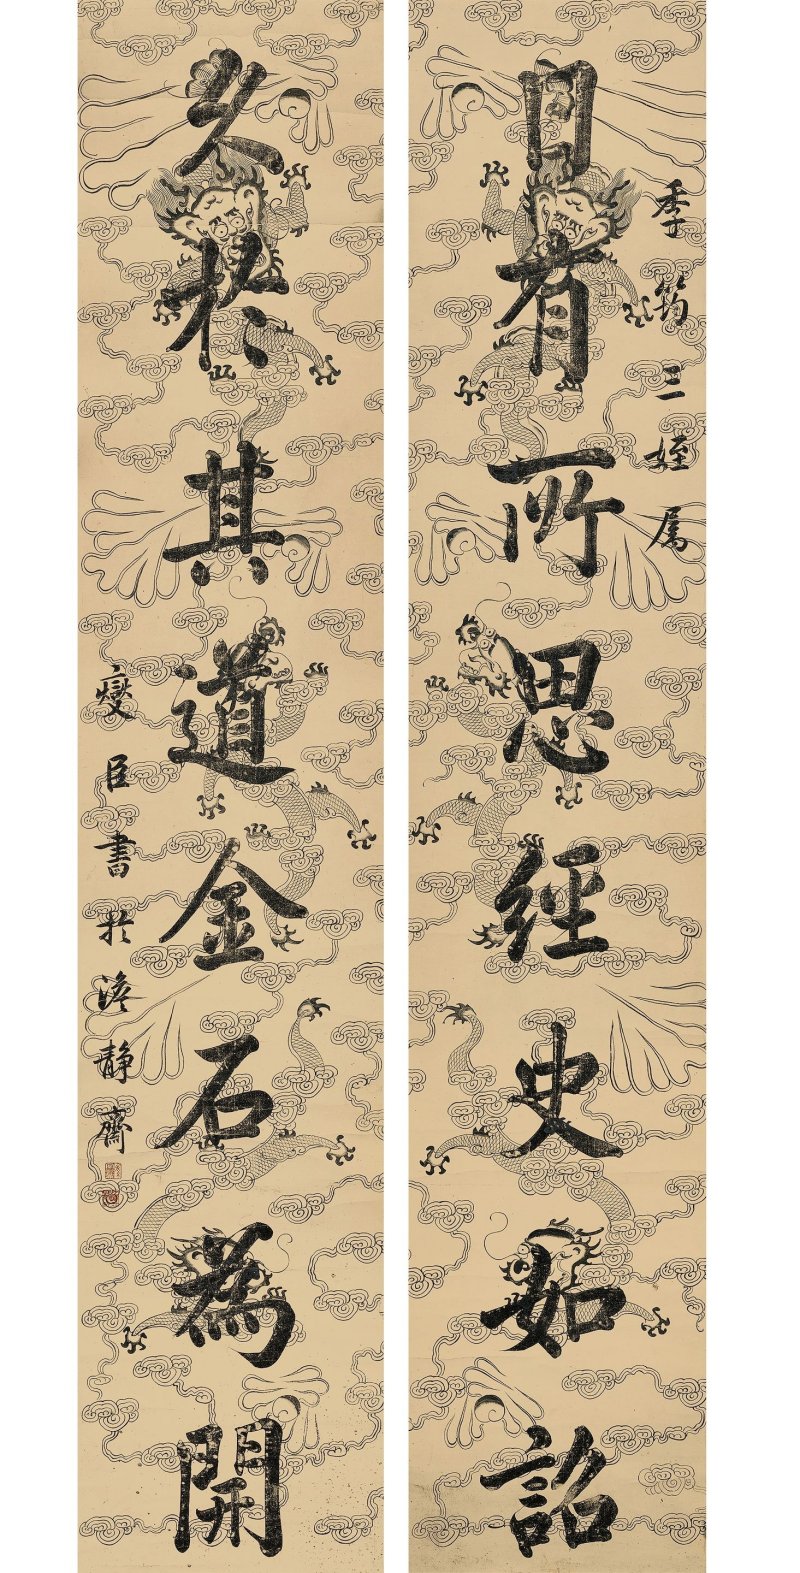 季筠三姪属
日有所思經史如詔
久於其道金石為開
燮臣書於澹靜齋